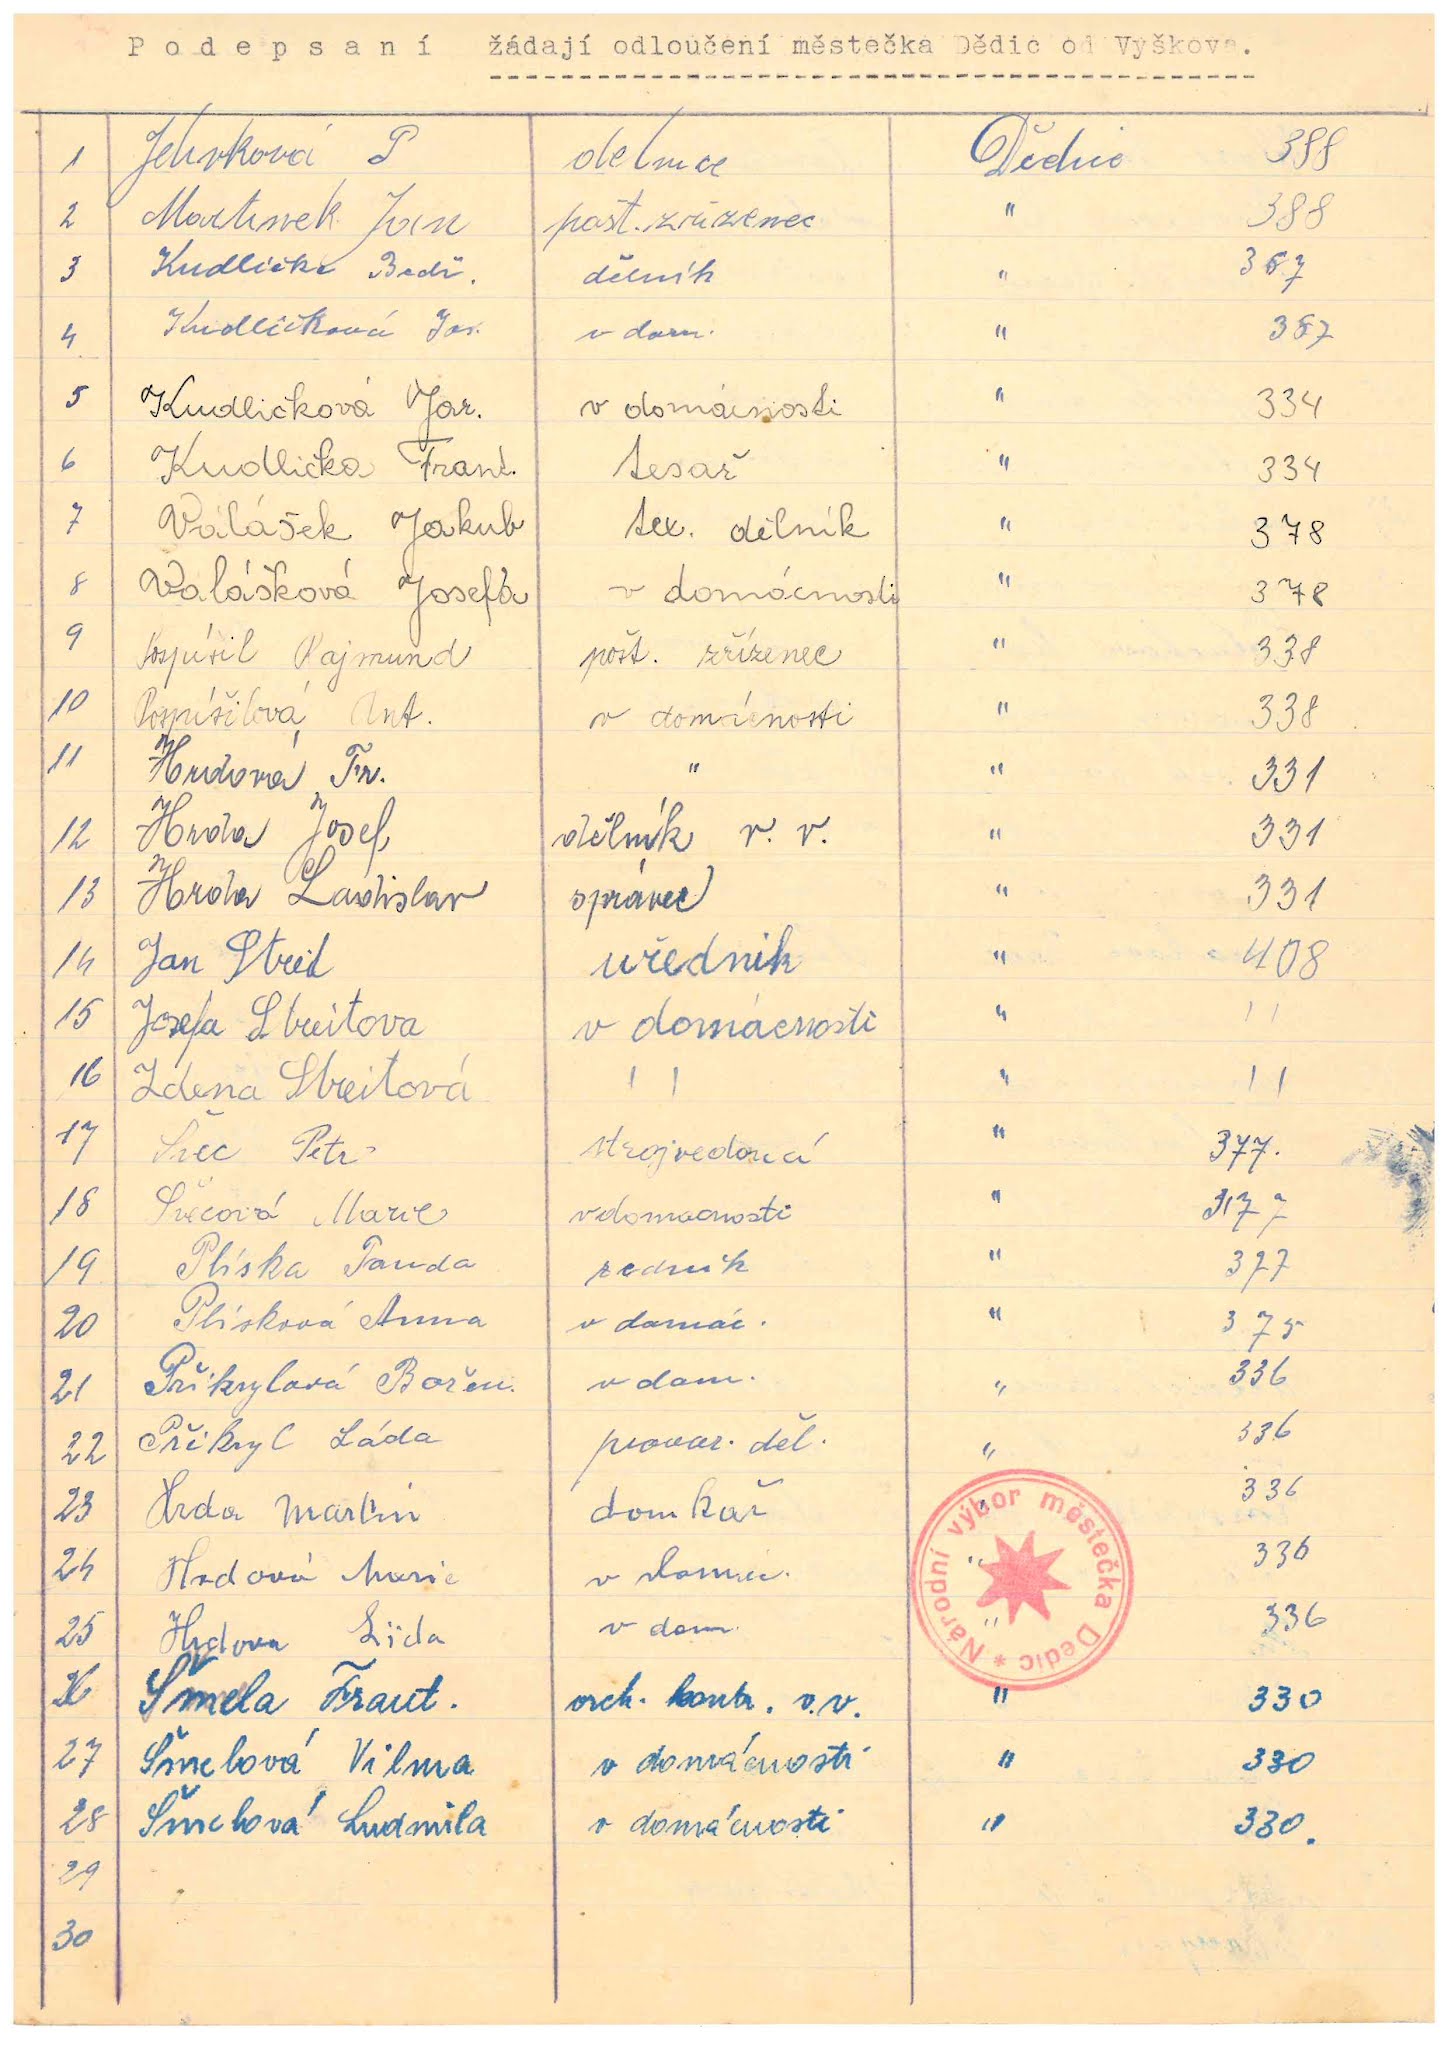 Podepsaní žádají odloučení městečka Dědic od Vyškova.
1 P delnice Dědic 388
2 Martinek Jan pošt. zřízenec " 388
3 Kudlička Bedř. dělník " 367
4 Kudličková Jos. v dom. " 367
5 Kudličková Jar. v domácnosti " 334
6 Kudlička Frant. tesař " 334
7 Valášek Jakub tex. dělník " 378
8 Valášková Josefa v domácnosti " 378
9 Pospíšil Rajmund pošt. zřízenec " 338
10 Pospíšilová Ant. v domácnosti " 338
11 Hrdová Fr. " " 331
12 Hrda Josef dělník v. v. " 331
13 Hrda Ladislav správce " 331
14 Jan Streit uředník " 408
15 Josefa Streitova v domácnosti " "
16 Zdena Streitová " " "
17 Švec Petr strojvedoucí " 377.
18 Švecová Marie vdomacnosti " 377
19 Plíska Fanda zedník " 377
20 Plísková Anna v domác. " 375
21 Přikrylová Božen. v dom. " 336
22 Přikryl Láda pivovar. děl. " 336
23 Hrda Martin domkař " 336
24 Hrdová Marie v domác. " 336
25 Hrdova Lída v dom. " 336
26 Šmela Frant. v.v. " 330
27 Šmelová Vilma v domácnosti " 330
28 Šmelová Ludmila v domácnosti " 330.
29
30
Národní výbor městečka Dědic *